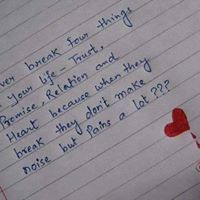 ver break four things
Your life - Trust,
Promise, Relation and
Heart because when they
break they don't make
noise but Pains a lot ???